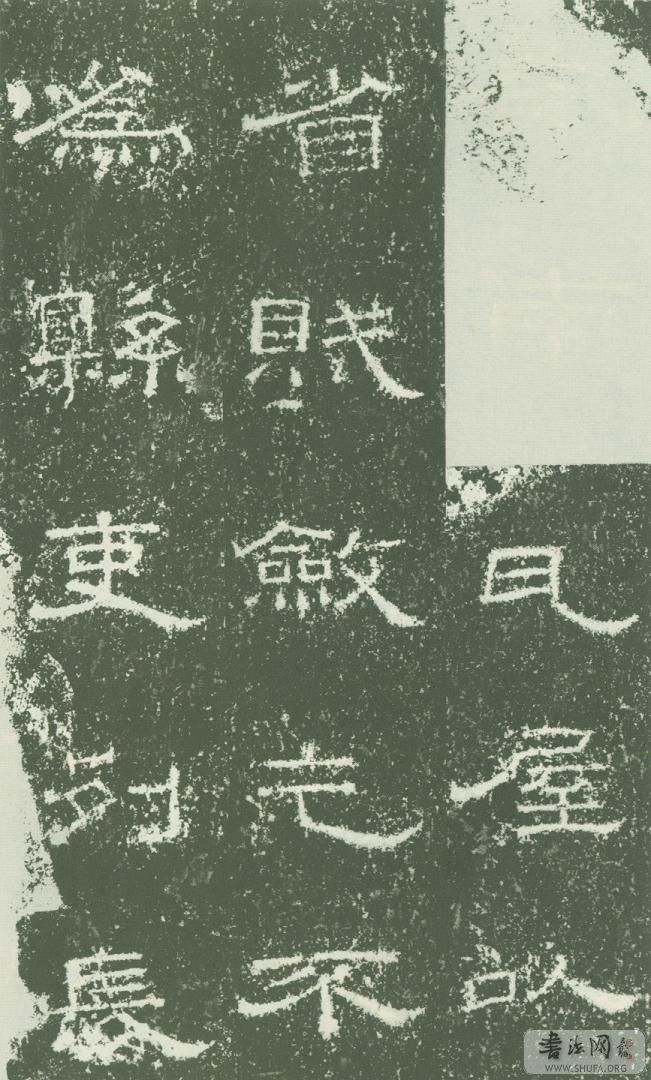 瓦屋以
省賦斂乞不
為縣吏列長
书法网
WWW.SHUFA.ORG